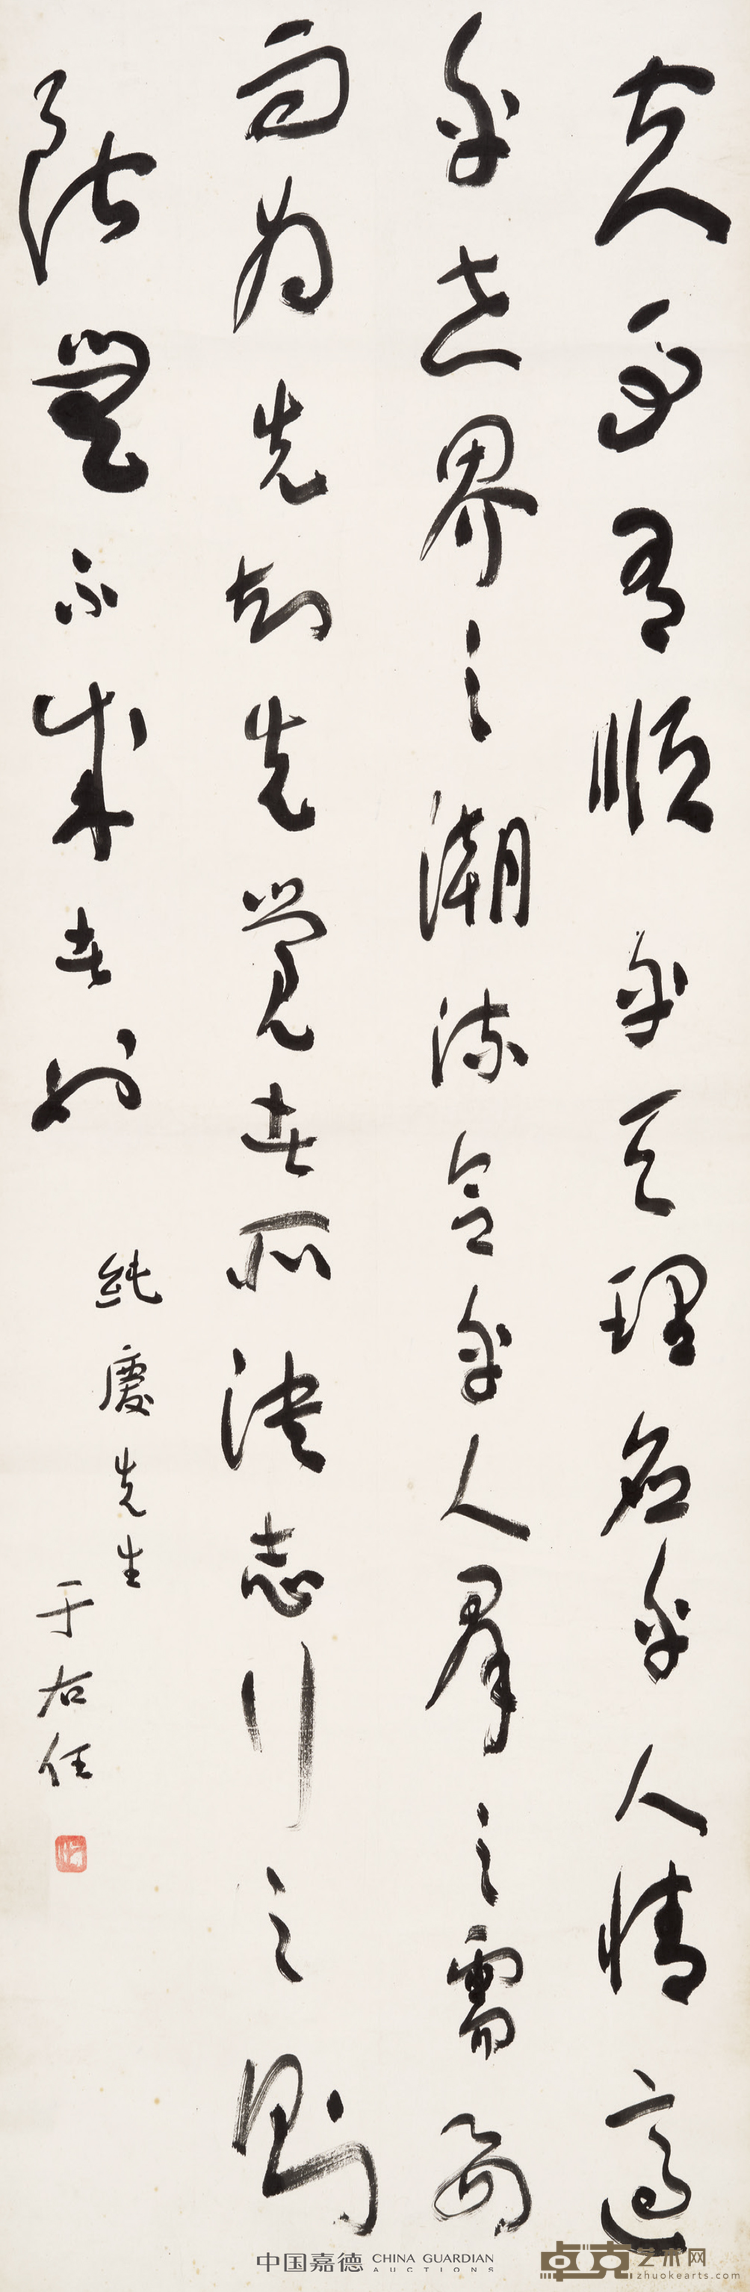 夫事有順乎天理應乎人情適
乎世界之潮流合乎人羣之需要
而為先知先覺者所決志行之則
斷無不成者也
純慶先生
于右任
中国嘉德 CHINA GUARDIAN AUCTIONS
卓克艺术网
zhuokearts.com